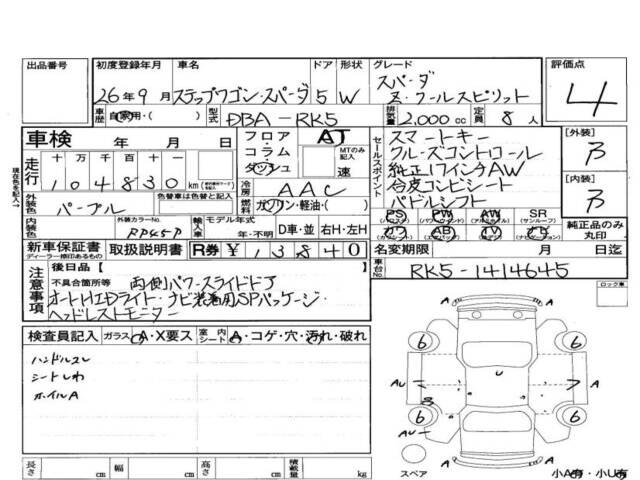 出品番号
初度登録年月 車名 ドア 形状 グレード 評価点
26年9月 ステップワゴン・スパーダ 5 W スパーダ Z・クールスピリット 4
車歴 自家用・( ) 型式 DBA-RK5 排気量 2,000cc 定員 8人
車検 年 月 日
フロア・コラム・ダッシュ
AT
MTのみ記入
速
セールスポイント
スマートキー
クルーズコントロール
純正17インチAW
合皮コンビシート
パドルシフト
[外装] B
[内装] B
現在色を記入→
走行 十万千百十一
104830km
冷房 AAC
外装色 パープル 色替車は色替と記入
燃料 ガソリン・軽油・( )
内装色 外装カラーNo. RP45P
輸入車 モデル年式 年・不明 D車・並 右H・左H
PS PW AW SR
カワ AB TV ナビ
純正品のみ丸印
新車保証書 取扱説明書 R券 ¥13840
ディーラー捺印あるもの
名変期限 月 日迄
車台No. RK5-1414645
注意事項
後日品[ ]
不具合箇所等 両側パワースライドドア
オートHIDライト・ナビ装着用SPパッケージ・
ヘッドレストモニター
ロック車
検査員記入 ガラス A・X要ス 室内シート A・コゲ・穴・汚れ・破れ
ハンドルスレ
シートしわ
ホイルA
A A
6 6
AU A
6 6
AU
A A
スペア 小A有・小U有
長さ cm 幅 cm 高さ cm 積載量 kg